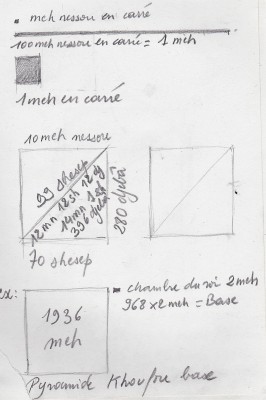 . mch nessou en carré
100 mch nessou en carré = 1 mch
1 mch en carré
10 mch nessou
99 shesep
12mn 12sh 12dj
14mn 1sp
396 djebâ
280 djebâ
70 shesep
ex:
1936
mch
chambre du roi 2mch
968 x 2 mch = Base
Pyramide Khoufou base